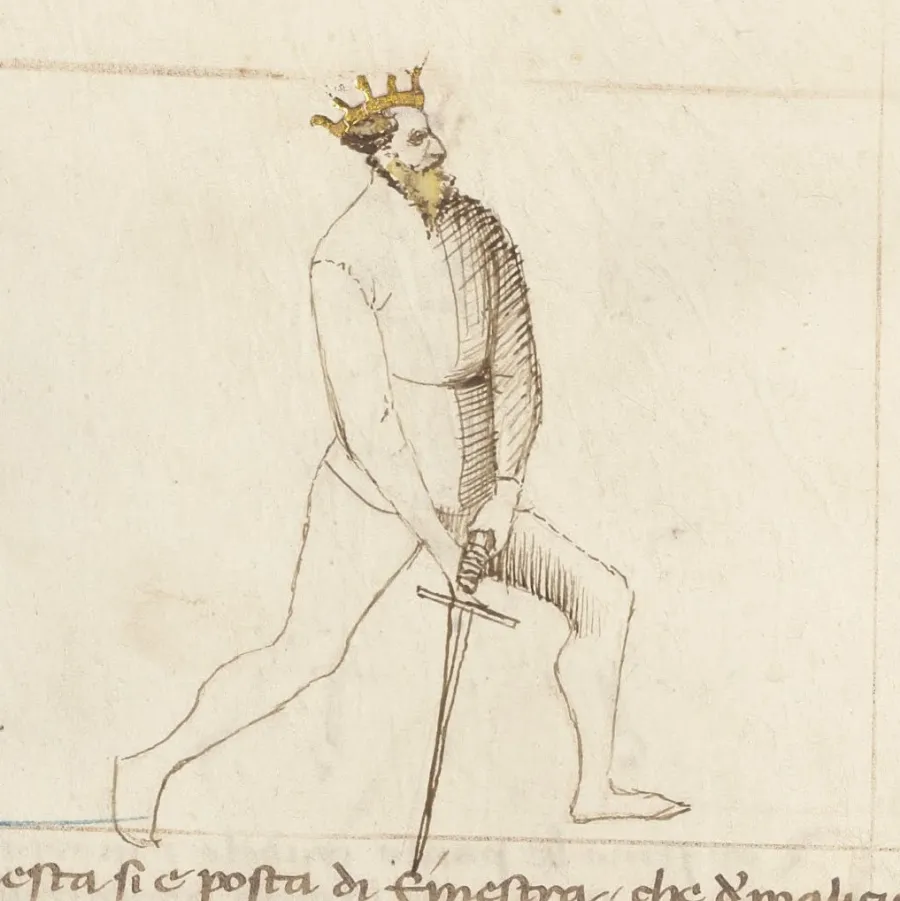 esta si e posta di finestra che d'malici